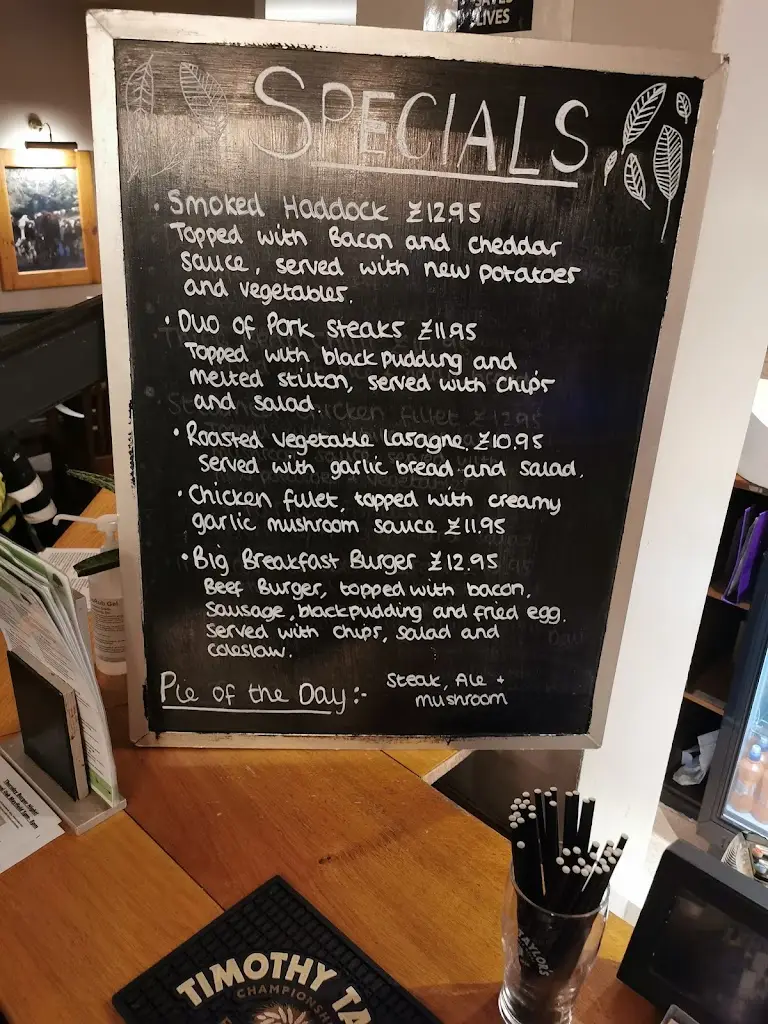 LIVES
SPECIALS
• Smoked Haddock £12.95
Topped with Bacon and cheddar
sauce, served with new potatoes
and vegetables.
• Duo of Pork steaks £11.95
Topped with black pudding and
melted stilton, served with chips
and salad.
• Roasted vegetable lasagne £10.95
served with garlic bread and salad.
• Chicken fillet, topped with creamy
garlic mushroom sauce £11.95
• Big Breakfast Burger £12.95
Beef Burger, topped with bacon,
sausage, blackpudding and fried egg.
Served with chips, salad and
coleslaw.
Pie of the Day:- Steak, Ale +
mushroom
TIMOTHY TA
CHAMPIONSH
TAYLORS